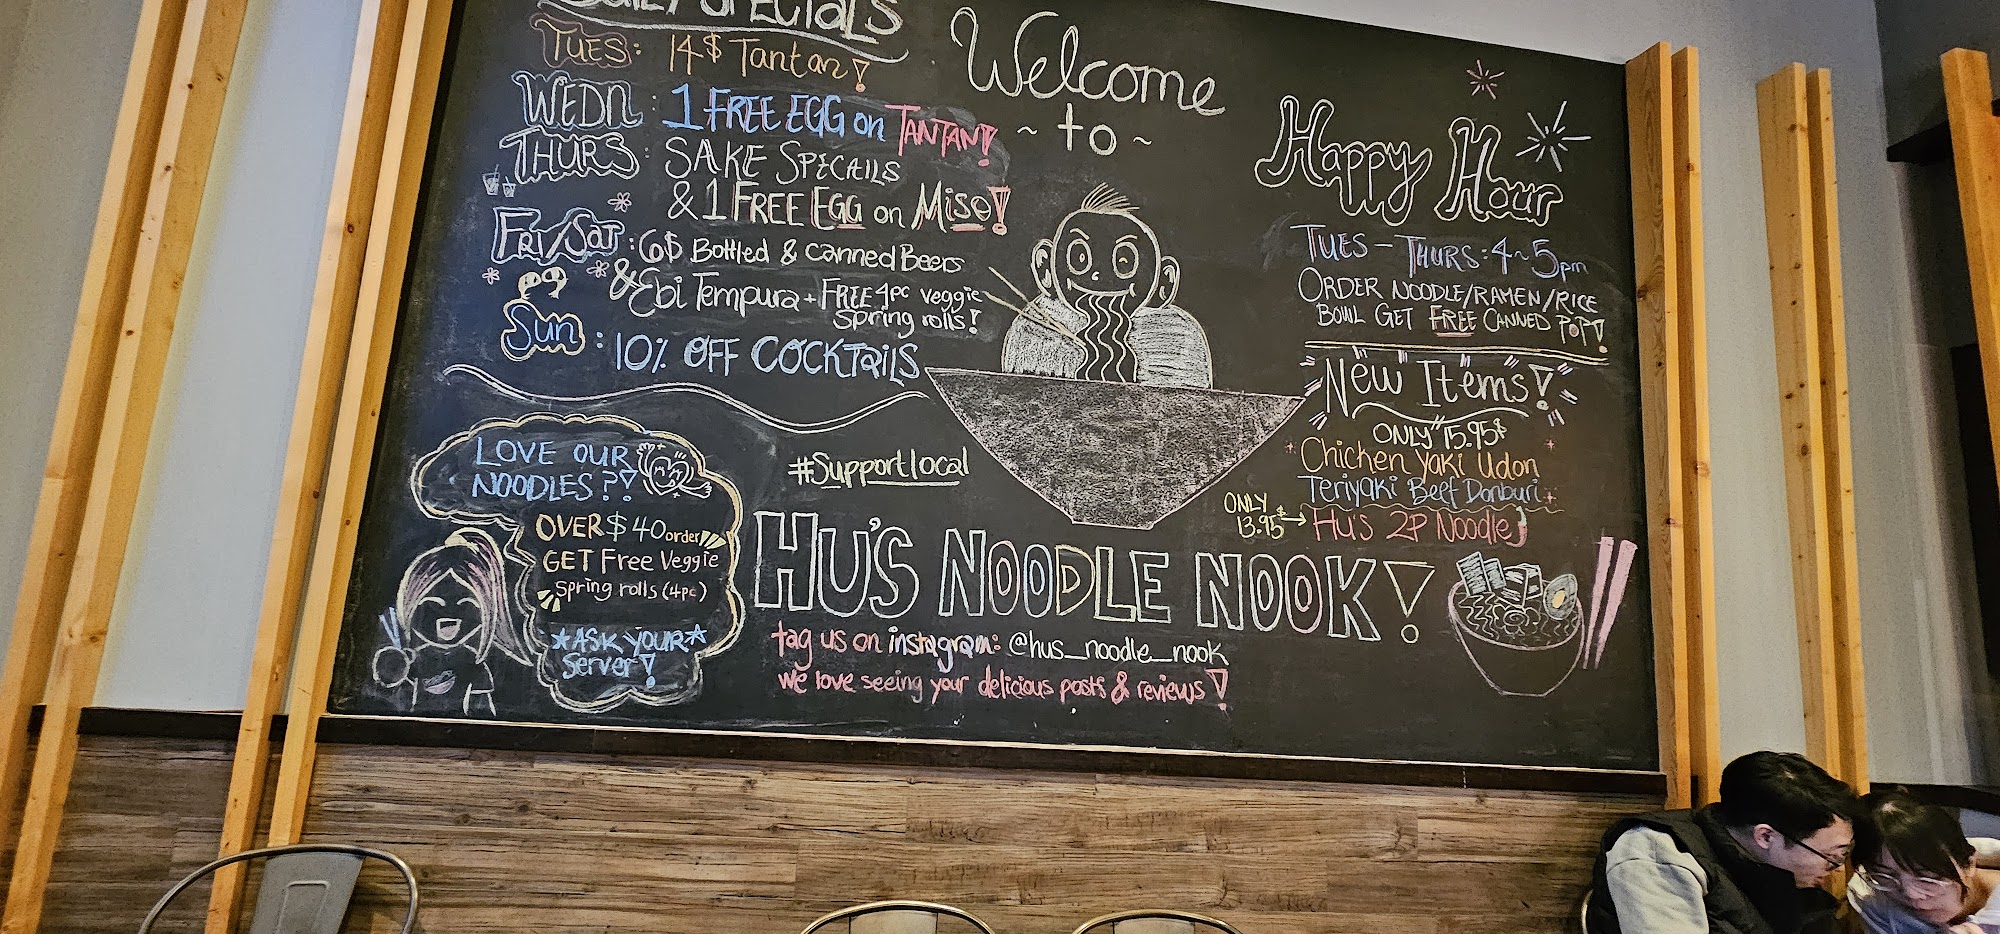 DAILY SPECIALS
TUES: 14$ Tantan!
WEDN: 1 FREE EGG on TANTAN!
THURS: SAKE SPECAILS
& 1 FREE EGG on Miso!
FRI/SAT: 6$ Bottled & Canned Beers
& Ebi Tempura + FREE 4pc veggie
spring rolls!
Sun: 10% OFF COCKTAILS
Welcome
~ to ~
Happy Hour
TUES - THURS: 4~5pm
ORDER NOODLE/RAMEN/RICE
BOWL GET FREE CANNED POP!
New Items!
ONLY 15.95$
Chicken Yaki Udon
Teriyaki Beef Donburi
ONLY
13.95$ → Hu's 2P Noodle
LOVE OUR
NOODLES??!
OVER $40 order
GET Free Veggie
Spring rolls (4pc)
*ASK YOUR*
Server!
#Supportlocal
HU'S NOODLE NOOK!
tag us on instagram: @hus_noodle_nook
we love seeing your delicious posts & reviews!